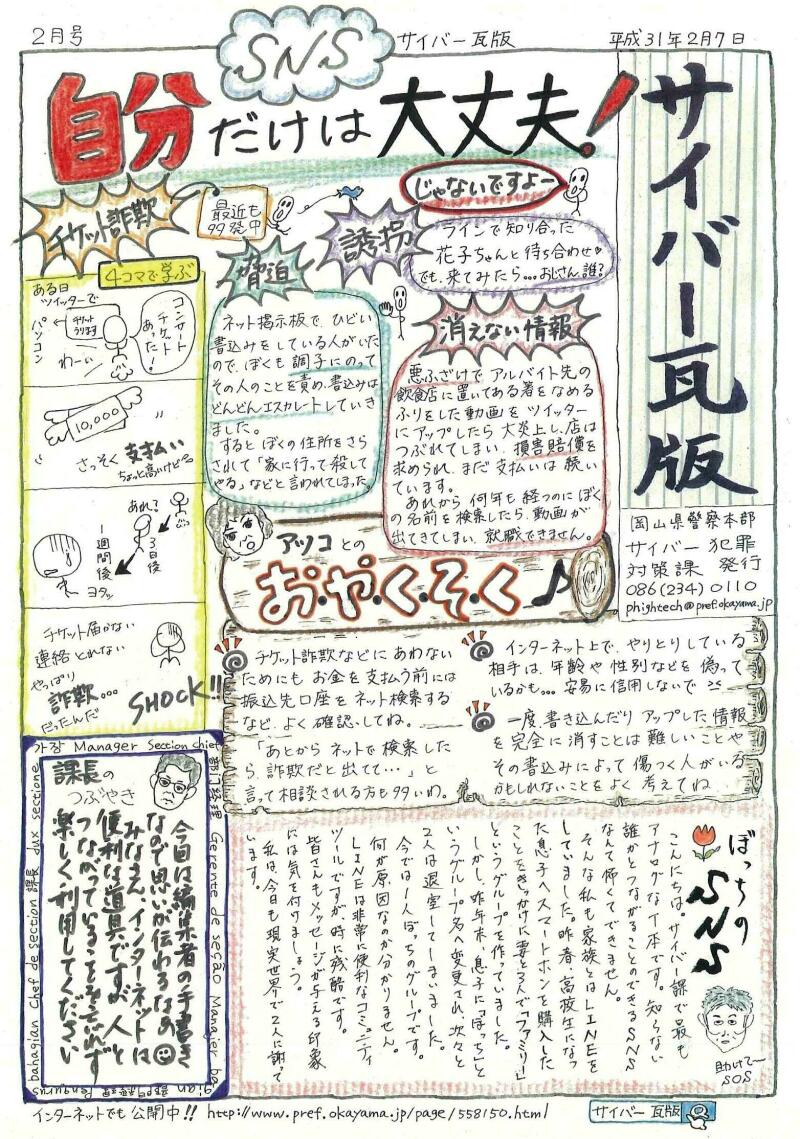 2月号
サイバー瓦版
平成31年2月7日
SNS
自分だけは大丈夫!
じゃないですよー
サイバー瓦版
岡山県警察本部
サイバー犯罪
対策課 発行
086(234)0110
phightech@pref.okayama.jp
チケット詐欺
最近も
多発中
4コマで学ぶ
ある日
ツイッターで
チケット
うります
コンサート
チケット
あった!
パソコン
わーい
10,000
さっそく支払い
ちょっと高いけど
あれ?
3日後
1週間後
ヨタッ
チケット届かない
連絡とれない
やっぱり
詐欺...
だったんだ
SHOCK!!
脅迫
ネット掲示板で、ひどい
書込みをしている人がいた
ので、ぼくも調子にのって
その人のことを責め、書込みは
どんどんエスカレートしていき
ました。
するとぼくの住所をさら
されて「家に行って殺して
やる」などと言われてしまった。
誘拐
ラインで知り合った
花子ちゃんと待ち合わせ♥
でも、来てみたら...おじさん、誰?
消えない情報
悪ふざけでアルバイト先の
飲食店に置いてある箸をなめる
ふりをした動画をツイッター
にアップしたら大炎上し、店は
つぶれてしまい、損害賠償を
求められ、まだ支払いは続い
ています。
あれから何年も経つのにぼく
の名前を検索したら、動画が
出てきてしまい、就職できません。
アツコとの
お・や・く・そ・く♪
チケット詐欺などにあわない
ためにもお金を支払う前には
振込先口座をネット検索する
など、よく確認してね。
「あとからネットで検索した
ら、詐欺だと出てて…」と
言って相談される方も多いわ。
インターネット上で、やりとりしている
相手は、年齢や性別などを偽って
いるかも...安易に信用しないで
一度、書き込んだりアップした情報
を完全に消すことは難しいことや
その書込みによって傷つく人がいる
かもしれないことをよく考えてね
Manager Section chief
部门经理 Gerente de seção Manajer
bahagian Chef de section 課長 dux sectione
課長の
つぶやき
今回は編集者の手書き
なので思いが伝わるなあ
みなさん、インターネットは
便利な道具ですが、人と
つながっていることを忘れず
楽しく利用してください
ぼっちのSNS
こんにちは。サイバー課で最も
アナログなT本です。知らない
誰かとつながることのできるSNS
なんて怖くてできません。
そんな私も家族とはLINEを
していました。昨春、高校生になっ
た息子へスマートホンを購入した
ことをきっかけに妻と3人で「ファミリー」
というグループを作っていました。
しかし、昨年末、息子に「ぼっち」と
いうグループ名へ変更され、次々と
2人は退室してしまいました。
今では1人ぼっちのグループです。
何が原因なのか分かりません。
LINEは非常に便利なコミュニティ
ツールですが、時に残酷です。
皆さんもメッセージが与える印象
には気を付けましょう。
私は、今日も現実世界で2人に謝って
います。
助けて~
SOS
インターネットでも公開中!! http://www.pref.okayama.jp/page/558150.html
サイバー瓦版